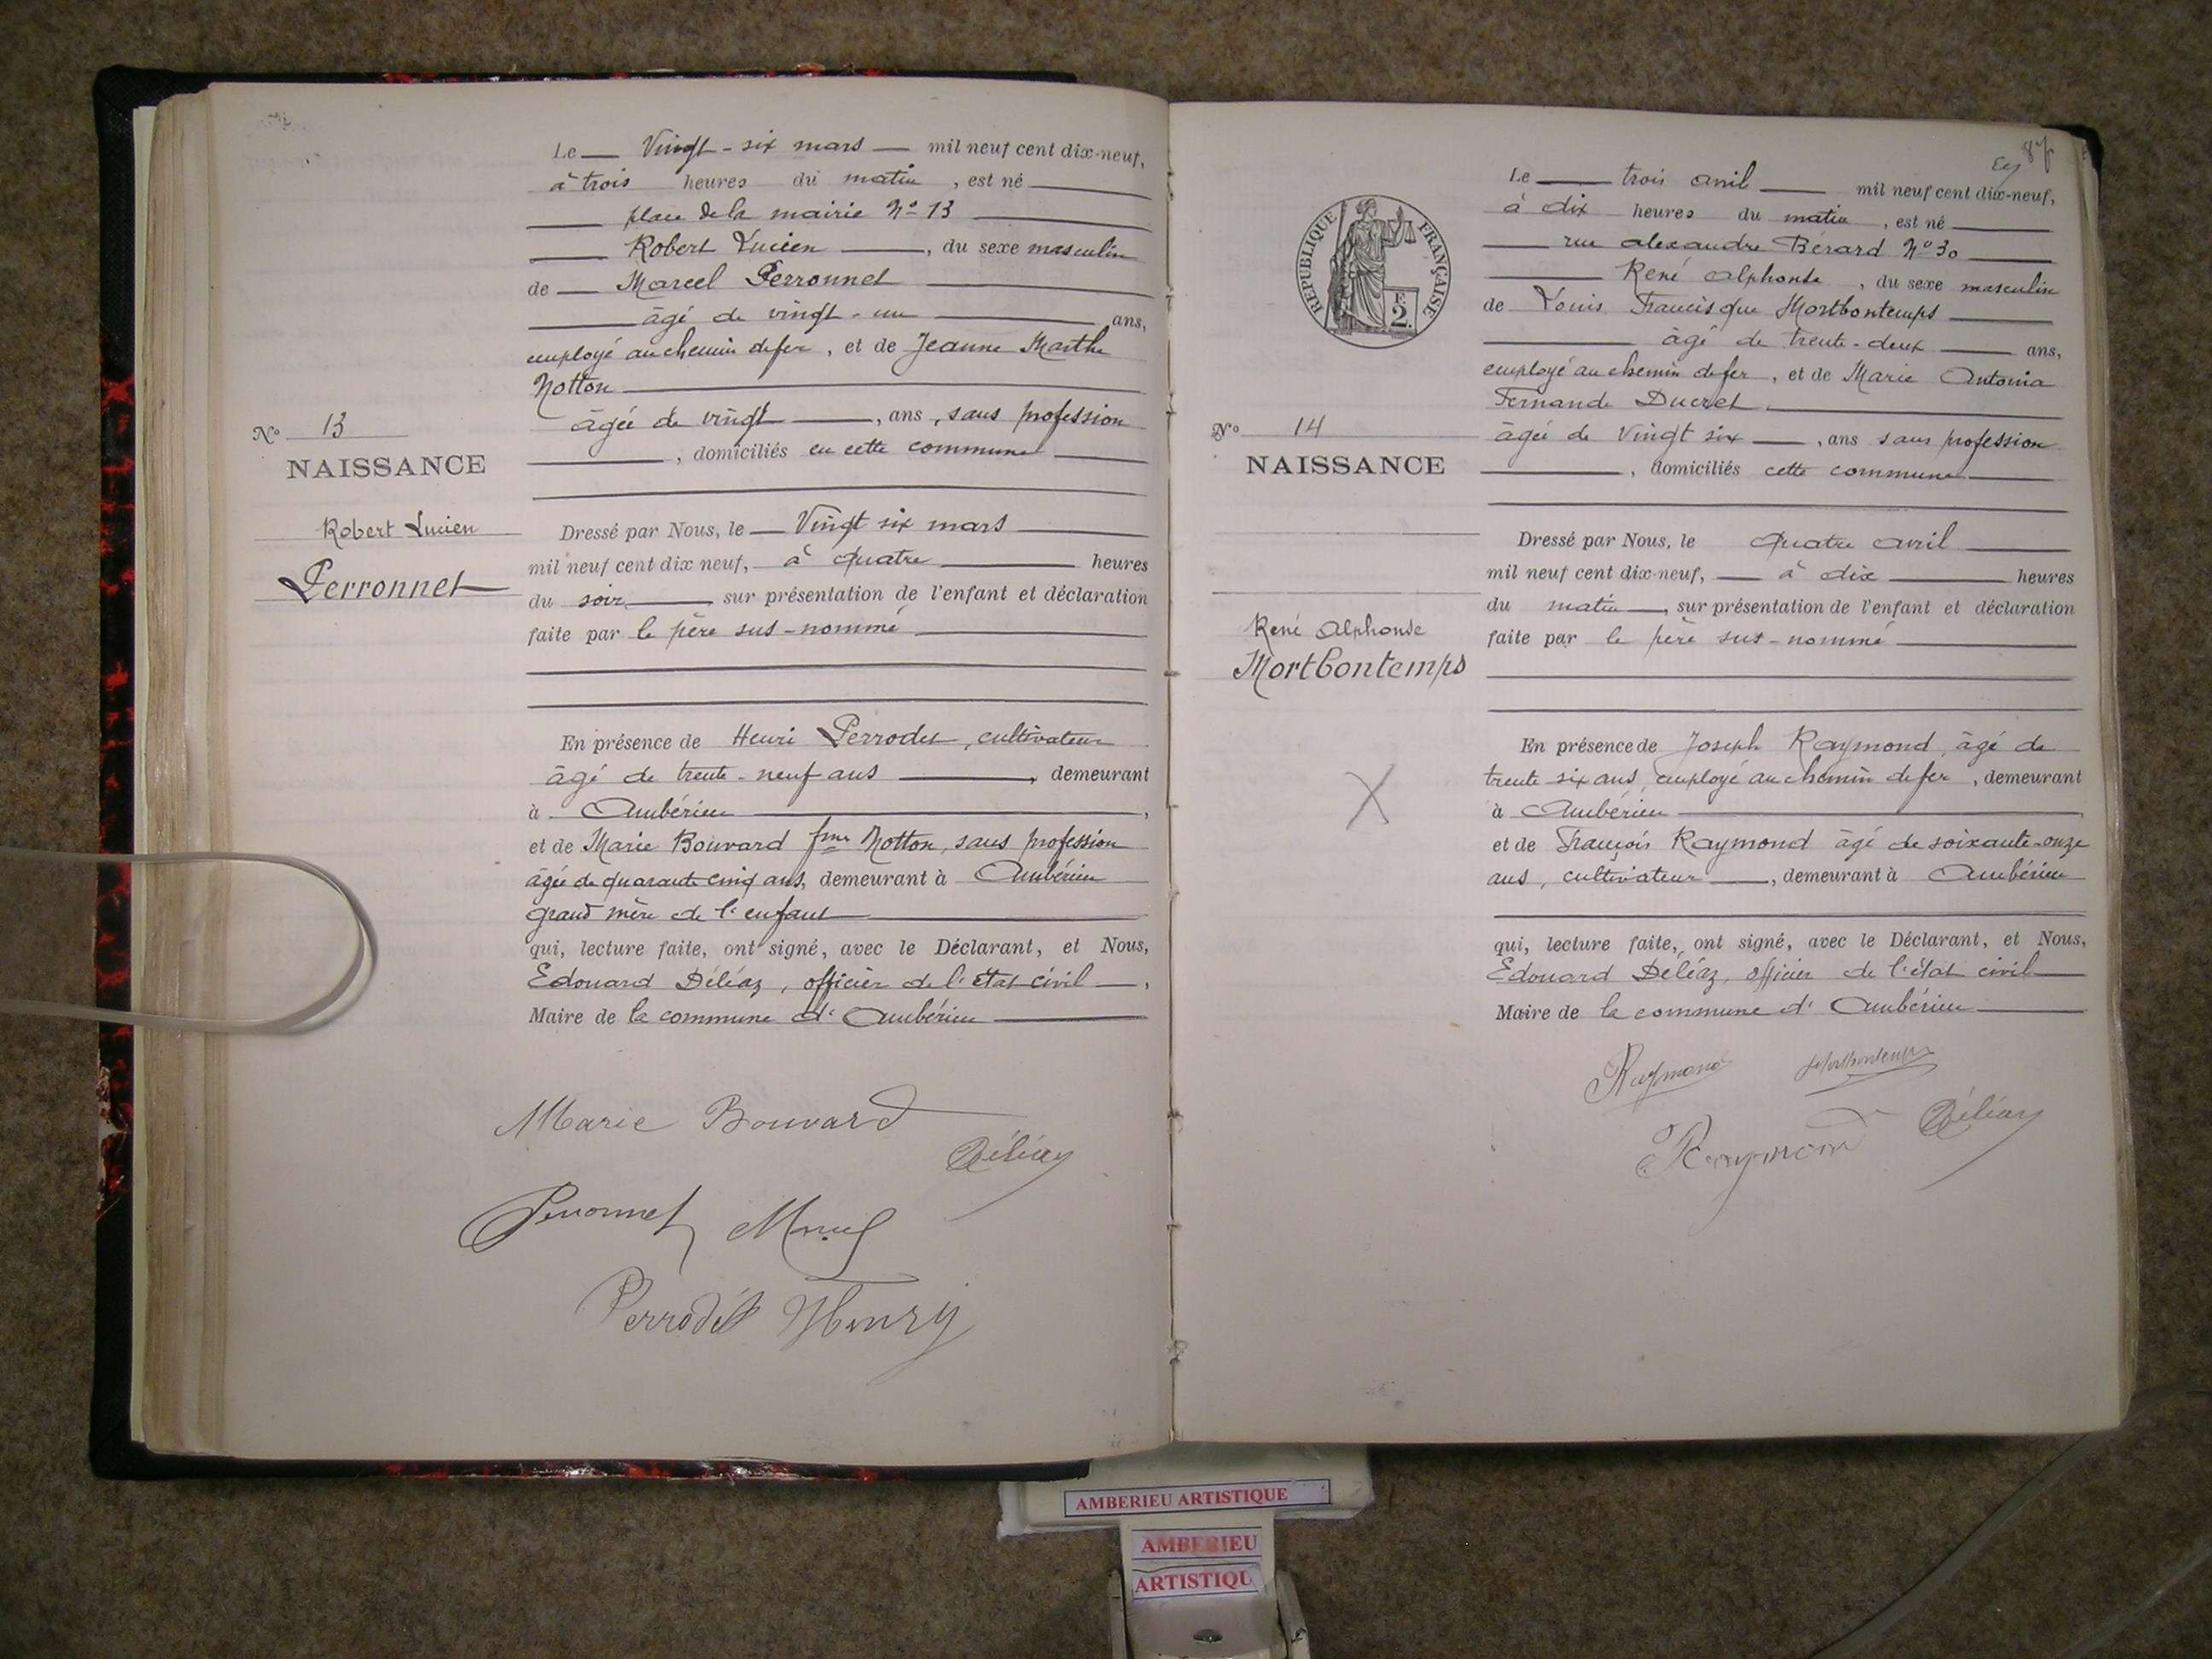 Le Vingt-six mars mil neuf cent dix-neuf,
à trois heures du matin, est né
place de la mairie No 13
Robert Lucien, du sexe masculin
de Marcel Perronnet
âgé de vingt-un ans,
employé au chemin de fer, et de Jeanne Marthe
Notton
âgée de vingt, ans, sans profession
, domiciliés en cette commune
No 13
NAISSANCE
Robert Lucien
Perronnet
Dressé par Nous, le Vingt six mars
mil neuf cent dix neuf, à quatre heures
du soir sur présentation de l'enfant et déclaration
faite par le père sus-nommé
En présence de Henri Perrodet, cultivateur
âgé de trente-neuf ans, demeurant
à Ambérieu,
et de Marie Bouvard fme Notton, sans profession
âgée de quarante cinq ans, demeurant à Ambérieu
grand mère de l'enfant
qui, lecture faite, ont signé, avec le Déclarant, et Nous,
Edouard Déléaz, officier de l'état civil,
Maire de la commune d'Ambérieu
Marie Bouvard
Déléaz
Perronnet Marcel
Perrodet Henry
Le trois avril mil neuf cent dix-neuf,
à dix heures du matin, est né
rue alexandre Bérard No 30
René alphonse, du sexe masculin
de Louis Francisque Mortbontemps
âgé de trente-deux ans,
employé au chemin de fer, et de Marie Antonia
Fernande Ducret
âgée de Vingt six, ans sans profession
, domiciliés cette commune
RÉPUBLIQUE FRANÇAISE
F.
2.
No 14
NAISSANCE
René Alphonse
Mortbontemps
X
Dressé par Nous, le quatre avril
mil neuf cent dix-neuf, à dix heures
du matin, sur présentation de l'enfant et déclaration
faite par le père sus-nommé
En présence de Joseph Raymond, âgé de
trente six ans, employé au chemin de fer, demeurant
à Ambérieu,
et de François Raymond âgé de soixante-onze
ans, cultivateur, demeurant à Ambérieu
qui, lecture faite, ont signé, avec le Déclarant, et Nous,
Edouard Déléaz, officier de l'état civil
Maire de la commune d'Ambérieu
Raymond Mortbontemps
Raymond Déléaz
AMBERIEU ARTISTIQUE
AMBERIEU
ARTISTIQU